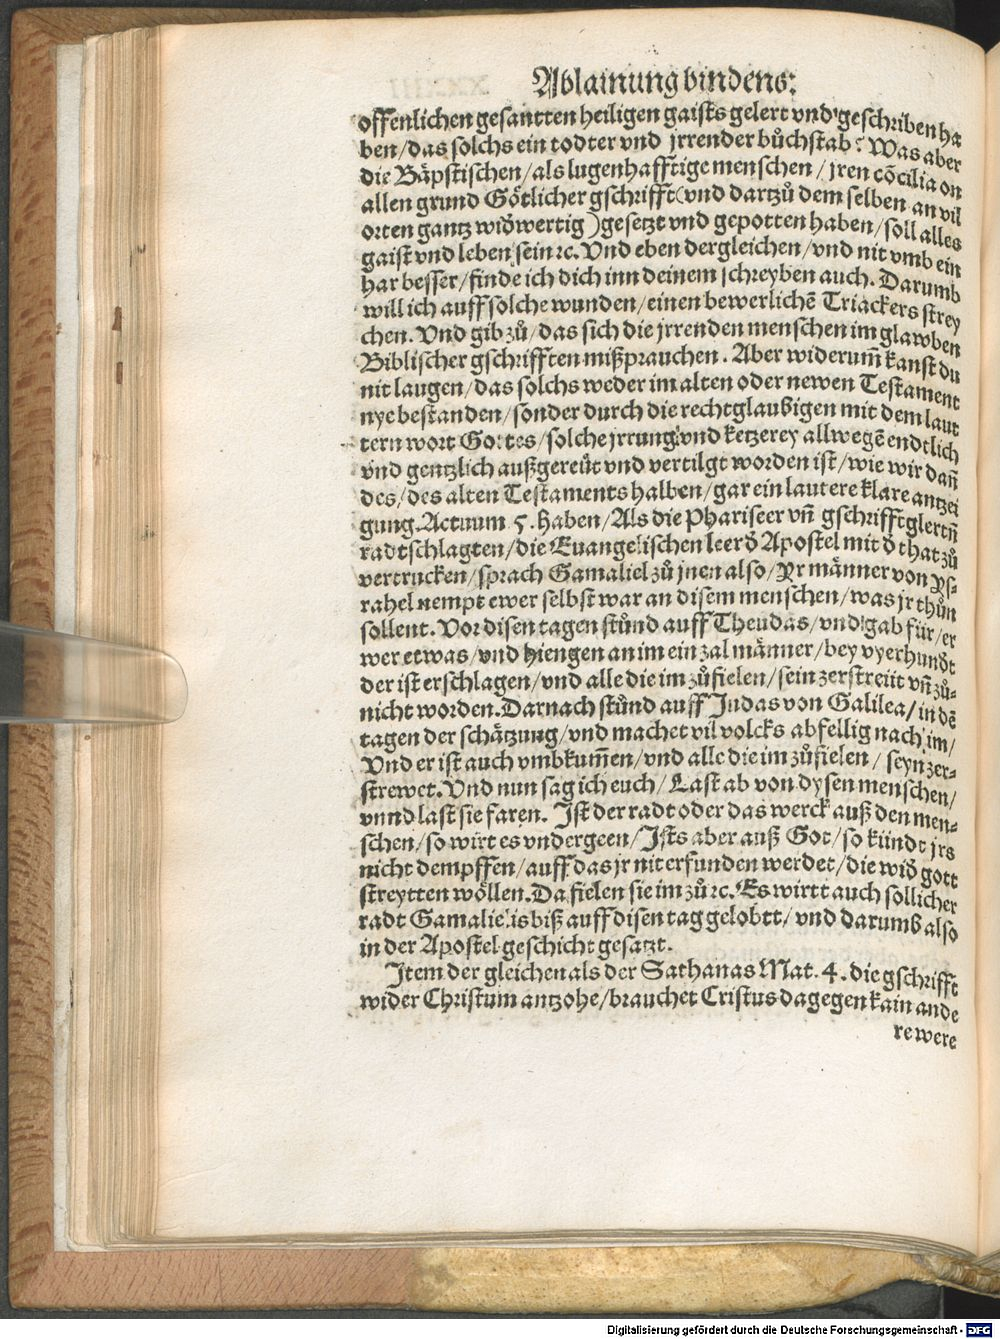 Ablainung bindens:
offenlichen gesantten heiligen gaists gelert vnd geschriben ha
ben/das solchs ein todter vnd jrrender bůchstab? Was aber
die Bäpstischen/als lugenhafftige menschen/jren cõcilia on
allen grund Götlicher gschrifft(vnd dartzů dem selben an vil
orten gantz widwertig)gesetzt vnd gepotten haben/soll alles
gaist vnd leben sein ꝛc. Vnd eben dergleichen/vnd nit vmb ein
har besser/finde ich dich inn deinem schreyben auch. Darumb
will ich auff solche wunden/einen bewerlichẽ Triackers strey
chen. Vnd gib zů/das sich die jrrenden menschen im glawben
Biblischer gschrifften mißprauchen. Aber widerum̃ kanst du
nit laugen/das solchs weder im alten oder newen Testament
nye bestanden/sonder durch die rechtglaubigen mit dem laut
tern wort Gottes/solche jrrung vnd ketzerey allwegẽ endtlich
vnd gentzlich außgereüt vnd vertilgt worden ist/wie wir dañ
des/des alten Testaments halben/gar ein lautere klare antzei
gung. Actuum 5. haben/Als die Phariseer vñ gschrifftglertñ
radtschlagten/die Euangelischen leer d̉ Apostel mit d̉ that zů
vertrucken/sprach Gamaliel zů jnen also/Yr männer von Ys⸗
rahel nempt ewer selbst war an disem menschen/was jr thůn
sollent. Vor disen tagen stůnd auff Theudas/vnd gab für/er
wer etwas/vnd hiengen an im ein zal männer/bey vyerhundt
der ist erschlagen/vnd alle die im zůfielen/sein zerstreüt vñ zů⸗
nicht worden. Darnach stůnd auff Judas von Galilea/in dẽ
tagen der schätzung/vnd machet vil volcks abfellig nach im/
Vnd er ist auch vmbkum̃en/vnd alle die im zůfielen/seyn zer⸗
strewet. Vnd nun sag ich euch/Last ab von dysen menschen/
vnnd last sie faren. Ist der radt oder das werck auß den men⸗
schen/so wirt es vndergeen/Ists aber auß Got/so kündt jrs
nicht dempffen/auff das jr nit erfunden werdet/die wid̉ gott
streytten wöllen. Da fielen sie im zů ꝛc. Es wirtt auch sollicher
radt Gamalielis biß auff disen tag gelobtt/vnd darumb also
in der Apostel geschicht gesatzt.
Item der gleichen als der Sathanas Mat. 4. die gschrifft
wider Christum antzohe/brauchet Cristus dagegen kain ande
re were
Digitalisierung gefördert durch die Deutsche Forschungsgemeinschaft - DFG